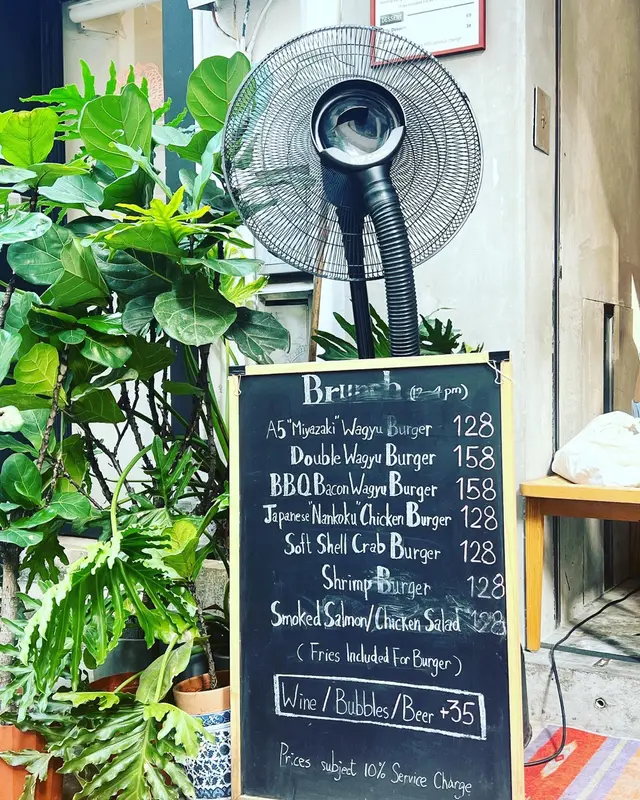 DESSERT
Brunch (12-4 pm)
A5 "Miyazaki" Wagyu Burger 128
Double Wagyu Burger 158
BBQ Bacon Wagyu Burger 158
Japanese "Nankoku" Chicken Burger 128
Soft Shell Crab Burger 128
Shrimp Burger 128
Smoked Salmon/Chicken Salad 128
(Fries Included For Burger)
Wine / Bubbles / Beer +35
Prices subject 10% Service Charge